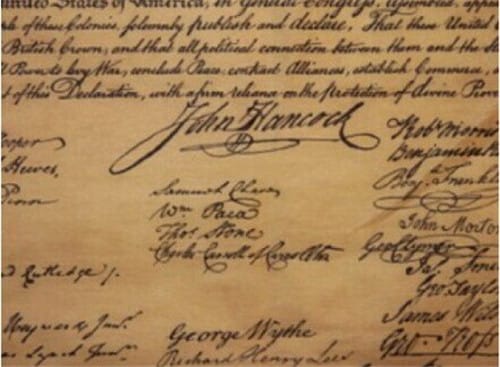 United States of America, in General Congress, Assembled,
of these Colonies, solemnly publish and declare, That these United
British Crown, and that all political connection between them and the
Power to levy War, conclude Peace, contract Alliances, establish Commerce,
of this Declaration, with a firm reliance on the protection of divine
John Hancock
Hewes,
Penn
Samuel Chase
Wm. Paca
Thos. Stone
Charles Carroll of Carrollton
Robt Morris
Benjamin
Benj. Franklin
John Morton
Geo Clymer
Jas.
Geo. Taylor
James
Geo. Ross
Rutledge
Heyward Junr.
Lynch Junr.
George Wythe
Richard Henry Lee